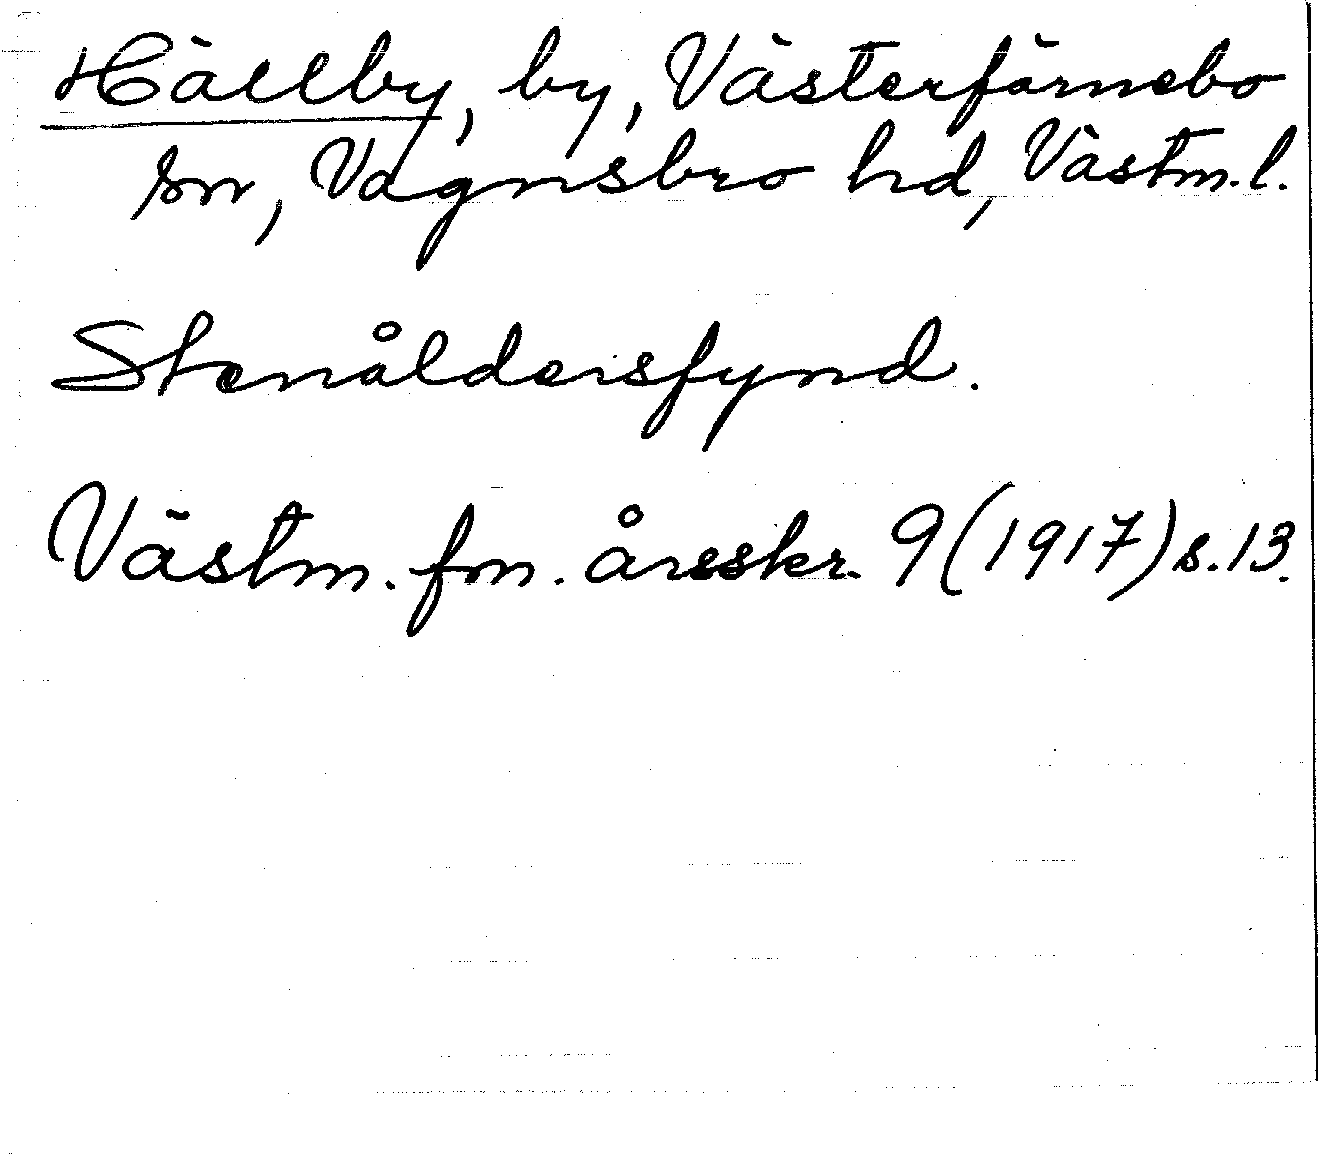 Hällby, by, Västerfärnebo
sn, Vagnsbro hd, Västm. l.
Stenåldersfynd.
Västm. fm. årsskr. 9 (1917) s. 13.